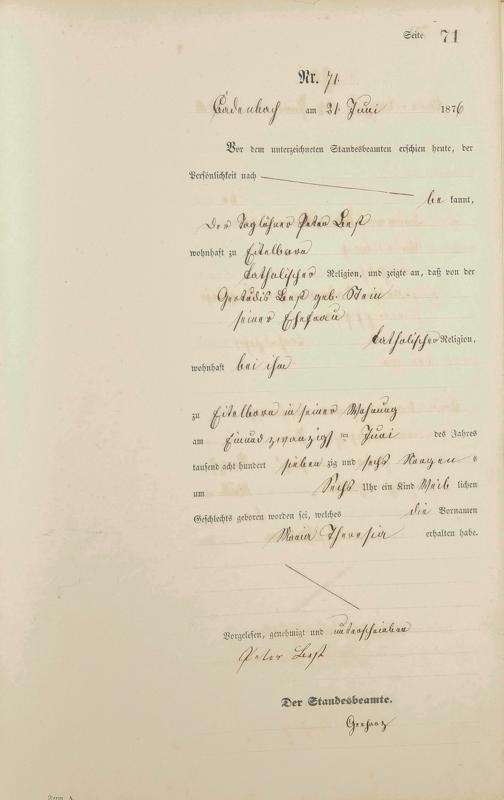 Seite 71
Nr. 71.
Cadenbach am 21. Juni 1876
Vor dem unterzeichneten Standesbeamten erschien heute, der
Persönlichkeit nach
be kannt,
der Taglöhner Peter Best
wohnhaft zu Eitelborn
katholischer Religion, und zeigte an, daß von der
Gertrudis Best geb. Stein
seiner Ehefrau
katholischer Religion,
wohnhaft bei ihm
zu Eitelborn in seiner Wohnung
am Einundzwanzigsten Juni des Jahres
tausend acht hundert sieben zig und sechs Morgens
um Sechs Uhr ein Kind Weib lichen
Geschlechts geboren worden sei, welches die Vornamen
Maria Theresia erhalten habe.
Vorgelesen, genehmigt und unterschrieben
Peter Best
Der Standesbeamte.